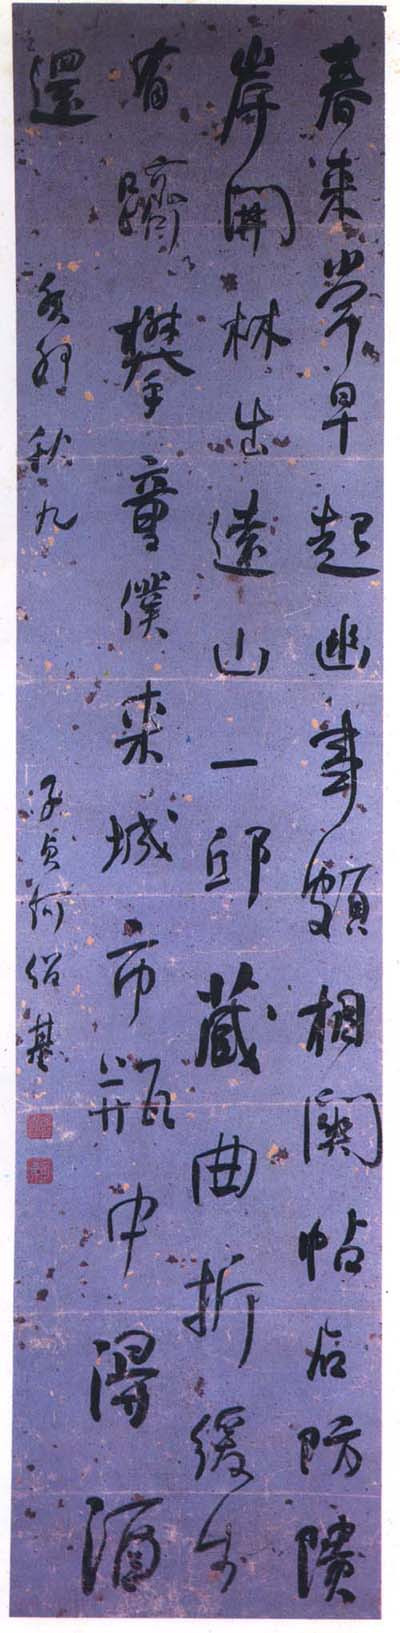 春來常早起幽事頗相關帖石防隤
岸開林出遠山一邱藏曲折緩步
有躋攀童僕來城市瓶中得酒
還
癸卯秋九
子貞何紹基